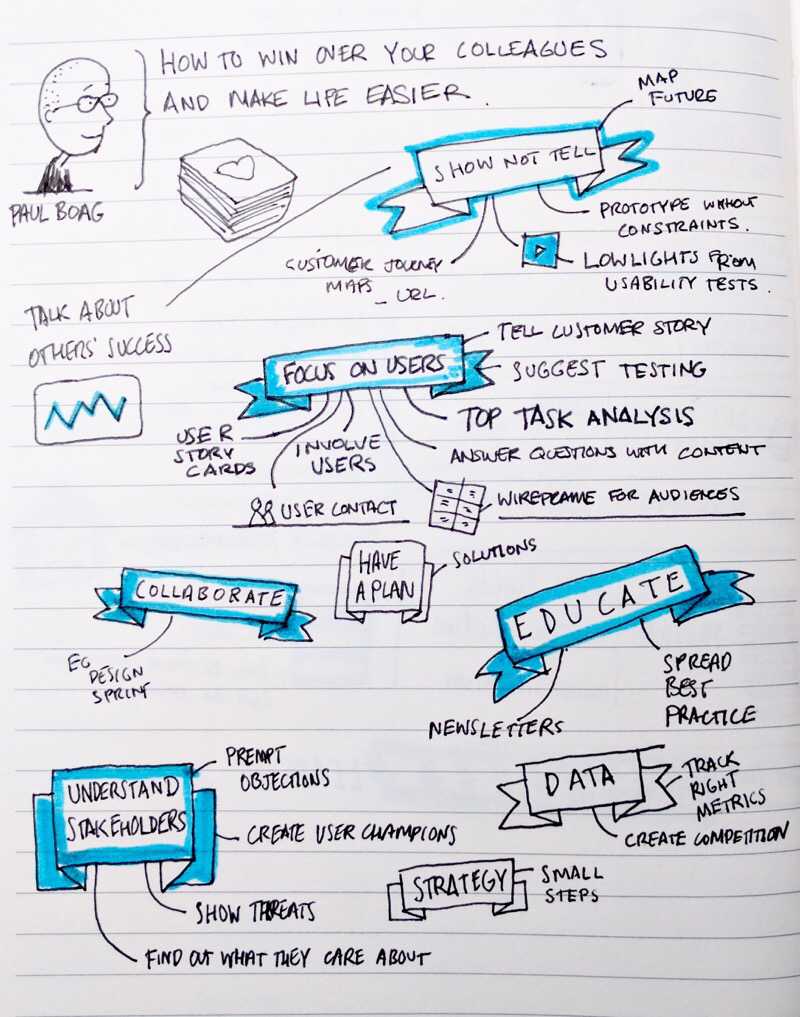 HOW TO WIN OVER YOUR COLLEAGUES
AND MAKE LIFE EASIER.
PAUL BOAG
SHOW NOT TELL
MAP
FUTURE
PROTOTYPE WITHOUT
CONSTRAINTS.
LOWLIGHTS FROM
USABILITY TESTS.
CUSTOMER JOURNEY
MAPS
_ URL.
TALK ABOUT
OTHERS' SUCCESS
FOCUS ON USERS
TELL CUSTOMER STORY
SUGGEST TESTING
TOP TASK ANALYSIS
ANSWER QUESTIONS WITH CONTENT
WIREFRAME FOR AUDIENCES
INVOLVE
USERS
USER
STORY
CARDS
USER CONTACT
HAVE
A PLAN
SOLUTIONS
COLLABORATE
EG
DESIGN
SPRINT
EDUCATE
NEWSLETTERS
SPREAD
BEST
PRACTICE
UNDERSTAND
STAKEHOLDERS
PREMPT
OBJECTIONS
CREATE USER CHAMPIONS
SHOW THREATS
FIND OUT WHAT THEY CARE ABOUT
DATA
TRACK
RIGHT
METRICS
CREATE COMPETITION
STRATEGY
SMALL
STEPS